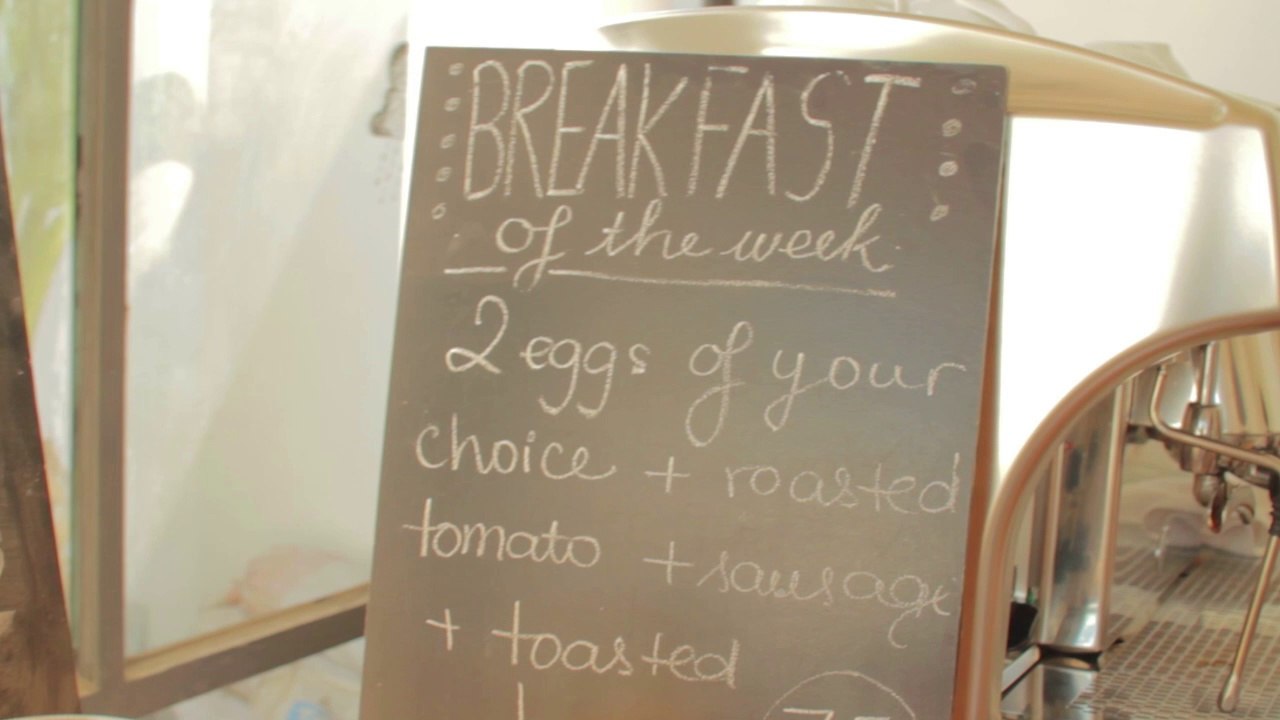 BREAKFAST
of the week
2 eggs of your
choice + roasted
tomato + sausage
+ toasted